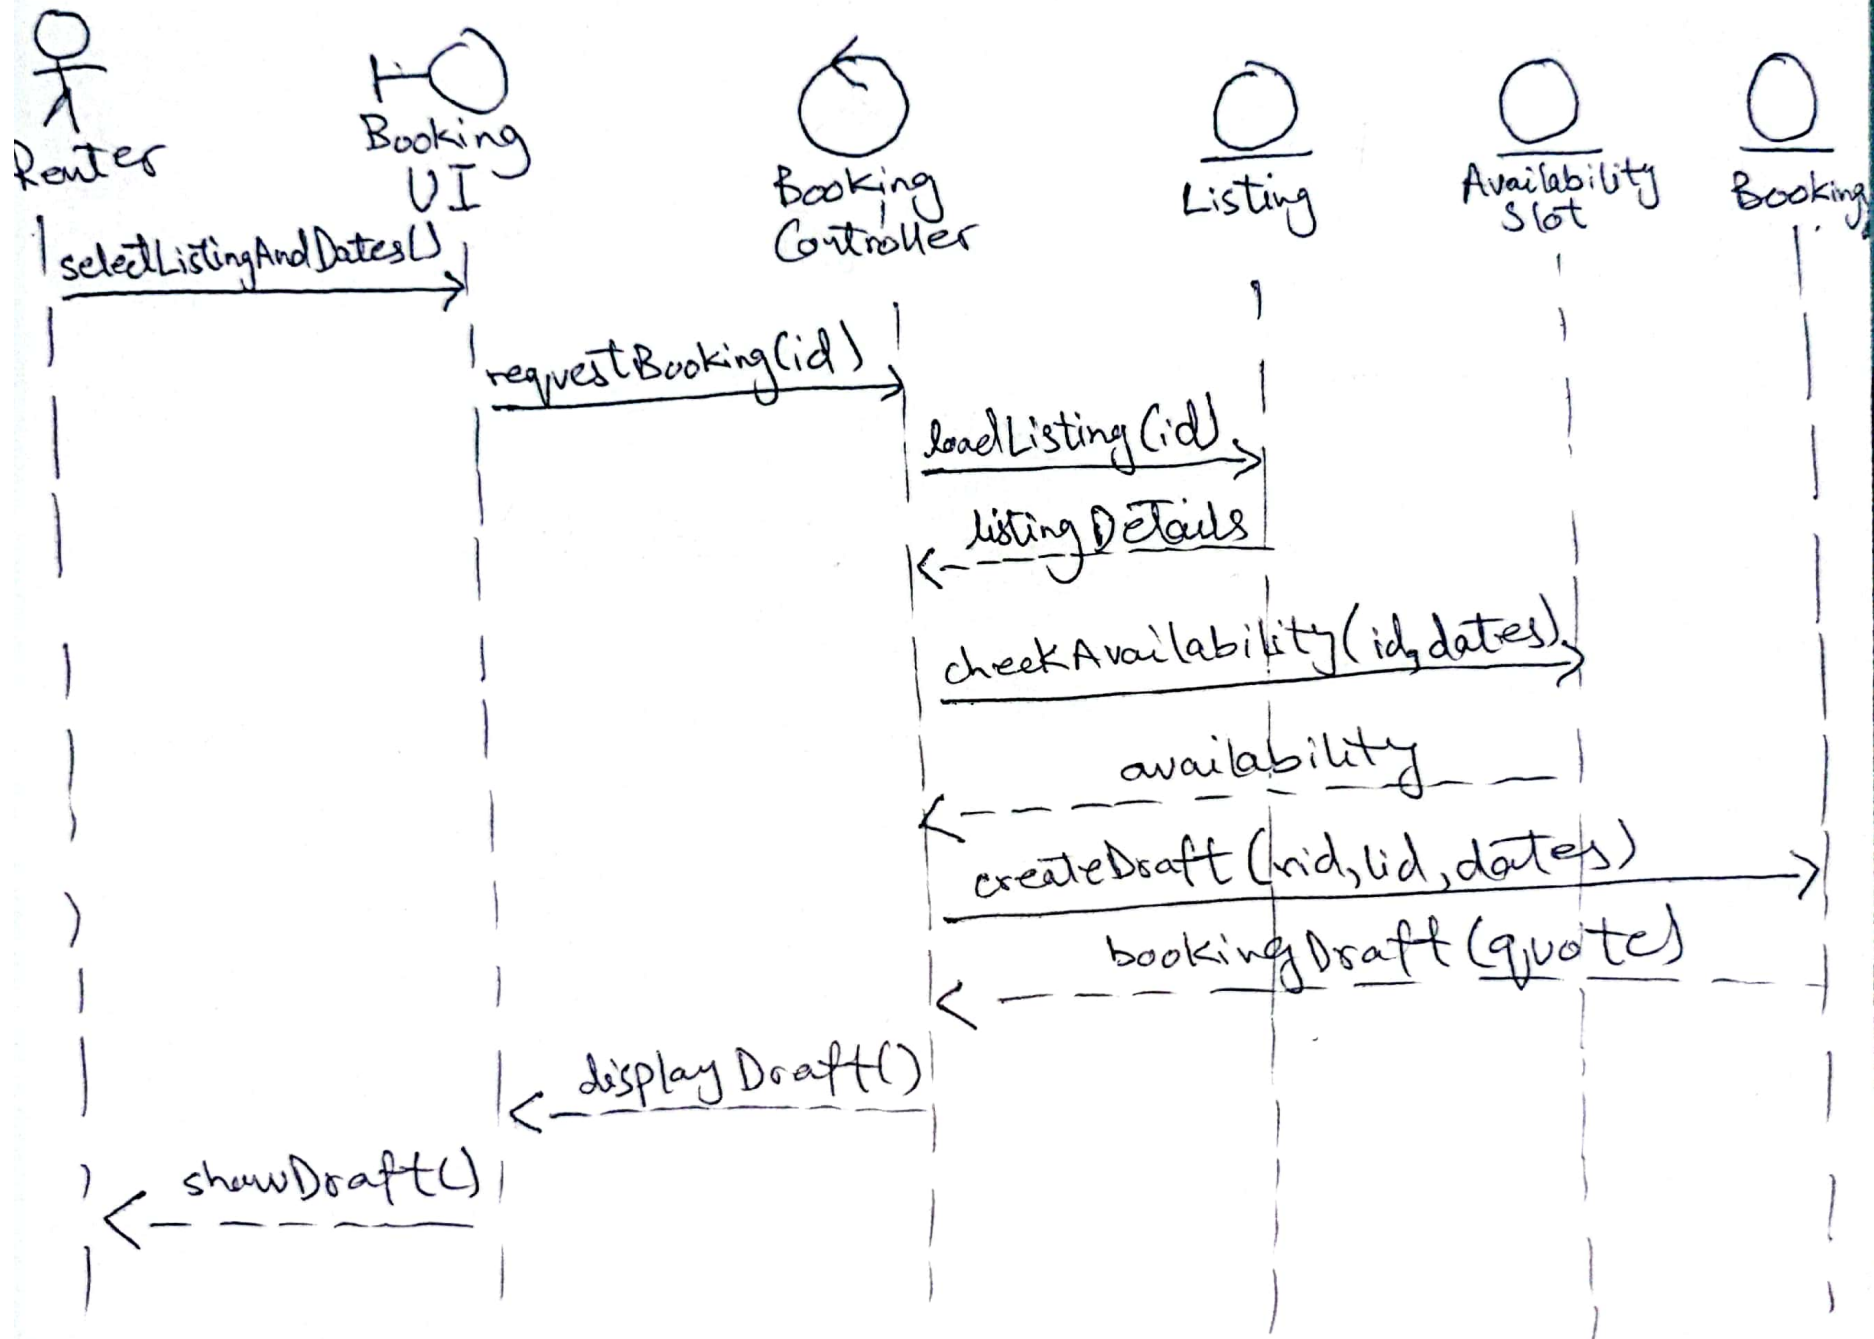 Renter
Booking
UI
Booking
Controller
Listing
Availability
Slot
Booking
selectListingAndDates()
requestBooking(id)
loadListing(id)
listingDetails
checkAvailability(id,dates)
availability
createDraft(rid,lid,dates)
bookingDraft(quote)
displayDraft()
showDraft()